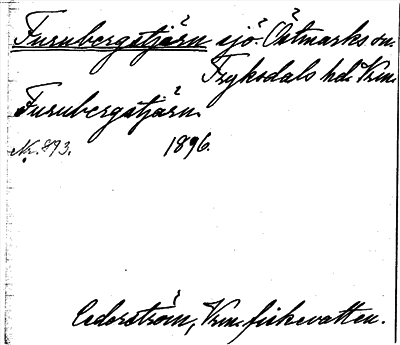 Furubergstjärn sjö. Östmarks sn.
Fryksdals hd. Vrm.
Furubergstjärn.
Nr. 893. 1896.
Cederström, Vrm. fiskevatten.